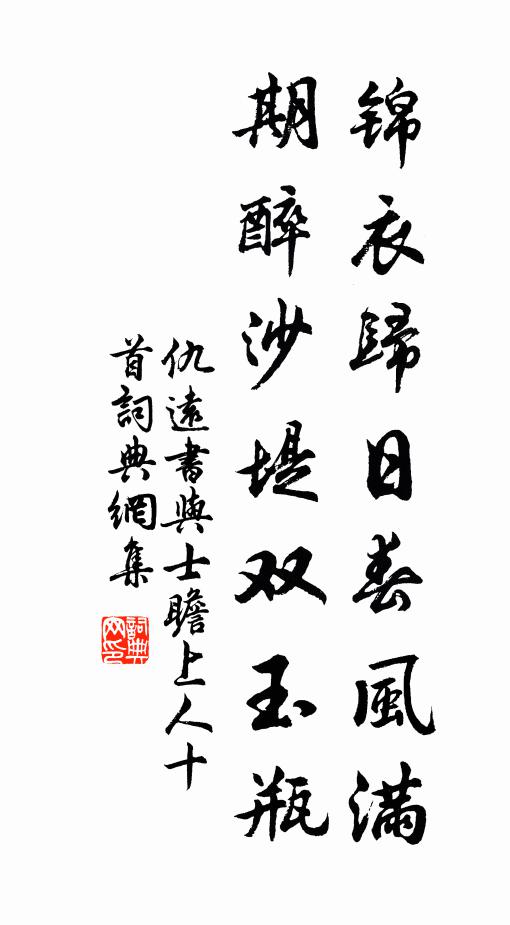 锦衣歸日春風满
期醉沙堤双玉瓶
仇遠書與士瞻上人十
首詞典網集
詞典网印